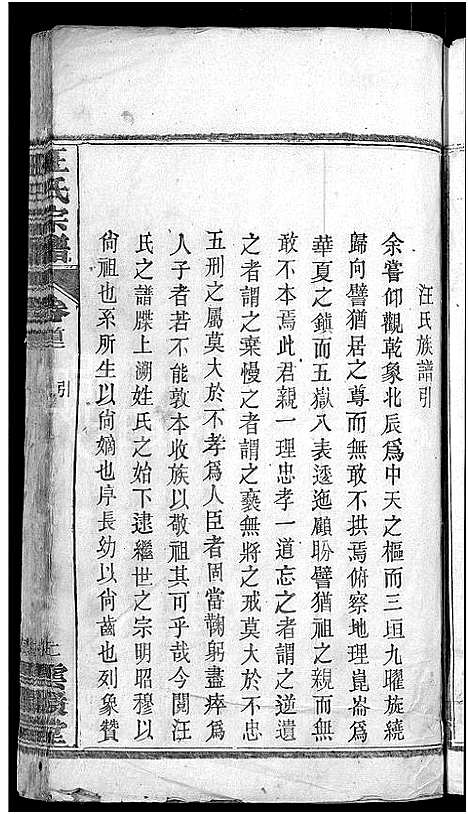 汪氏族譜引
余嘗仰觀乾象北辰爲中天之樞而三垣九曜族繞
歸向譬猶居之尊而無敢不拱焉俯察地理崑崙爲
華夏之鎮而五嶽八表逶迤顧盼譬猶祖之親而無
敢不本焉此君親一理忠孝一道忘之者謂之逆遺
之者謂之棄慢之者謂之褻無將之戒莫大於不忠
五刑之属莫大於不孝爲人臣者固當鞠躬盡瘁爲
人子者若不能敦本收族以敬祖其可乎哉今閱汪
氏之譜牒上溯姓氏之始下逮繼世之宗明昭穆以
尙祖也系所生以尙嫡也序長幼以尙齒也列象贊
汪氏宗譜
卷首
引